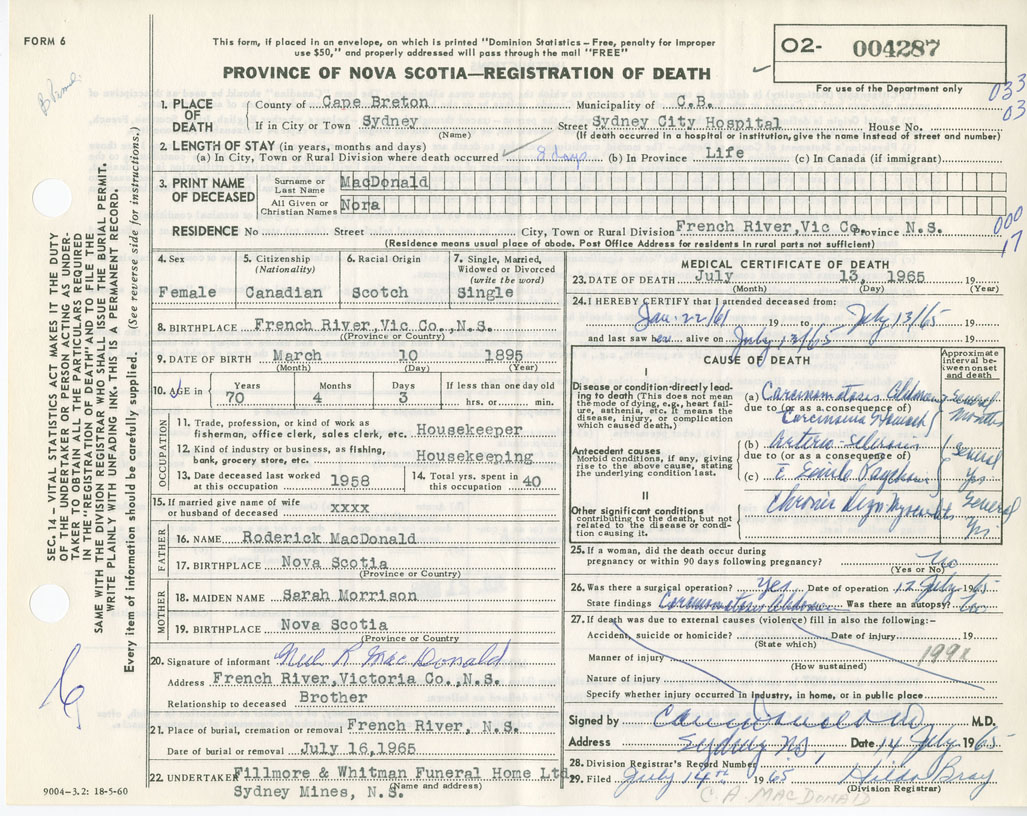 FORM 6
This form, if placed in an envelope, on which is printed "Dominion Statistics – Free, penalty for improper
use $50," and properly addressed will pass through the mail "FREE"
O2- 004287
PROVINCE OF NOVA SCOTIA—REGISTRATION OF DEATH
For use of the Department only
033
03
1. PLACE OF DEATH
County of Cape Breton Municipality of C.B.
If in City or Town Sydney Street Sydney City Hospital House No.
(Name) (If death occurred in a hospital or institution, give the name instead of street and number)
2. LENGTH OF STAY (in years, months and days)
(a) In City, Town or Rural Division where death occurred 8 days (b) In Province Life (c) In Canada (if immigrant)
3. PRINT NAME OF DECEASED
Surname or Last Name MacDonald
All Given or Christian Names Nora
000
17
RESIDENCE No Street City, Town or Rural Division French River,Vic Co. Province N.S.
(Residence means usual place of abode. Post Office Address for residents in rural parts not sufficient)
SEC. 14 – VITAL STATISTICS ACT MAKES IT THE DUTY
OF THE UNDERTAKER OR PERSON ACTING AS UNDER-
TAKER TO OBTAIN ALL THE PARTICULARS REQUIRED
IN THE "REGISTRATION OF DEATH" AND TO FILE THE
SAME WITH THE DIVISION REGISTRAR WHO SHALL ISSUE THE BURIAL PERMIT.
WRITE PLAINLY WITH UNFADING INK. THIS IS A PERMANENT RECORD.
Every item of information should be carefully supplied. (See reverse side for instructions.)
4. Sex Female
5. Citizenship (Nationality) Canadian
6. Racial Origin Scotch
7. Single, Married, Widowed or Divorced (write the word) Single
8. BIRTHPLACE French River,Vic Co.,N.S.
(Province or Country)
9. DATE OF BIRTH March 10 1895
(Month) (Day) (Year)
10. AGE in Years 70 Months 4 Days 3 If less than one day old hrs. or min.
OCCUPATION
11. Trade, profession, or kind of work as
fisherman, office clerk, sales clerk, etc. Housekeeper
12. Kind of industry or business, as fishing,
bank, grocery store, etc. Housekeeping
13. Date deceased last worked
at this occupation 1958
14. Total yrs. spent in
this occupation 40
15. If married give name of wife
or husband of deceased xxxx
FATHER
16. NAME Roderick MacDonald
17. BIRTHPLACE Nova Scotia
(Province or Country)
MOTHER
18. MAIDEN NAME Sarah Morrison
19. BIRTHPLACE Nova Scotia
(Province or Country
20. Signature of informant Neil R MacDonald
Address French River,Victoria Co.,N.S.
Relationship to deceased Brother
21. Place of burial, cremation or removal French River, N.S.
Date of burial or removal July 16,1965
22. UNDERTAKER Fillmore & Whitman Funeral Home Ltd
Sydney Mines, N.S.
(Name and address)
9004-3.2: 18-5-60
MEDICAL CERTIFICATE OF DEATH
23. DATE OF DEATH July 13, 1965 19
(Month) (Day) (Year)
24. I HEREBY CERTIFY that I attended deceased from:
Jan. 22/61 19 to July 13/65 19
and last saw her alive on July 13/65 19
CAUSE OF DEATH
Approximate interval between onset and death
I
Disease or condition directly lead-
ing to death (This does not mean
the mode of dying, e.g., heart fail-
ure, asthenia, etc. It means the
disease, injury, or complication
which caused death.)
(a) Carcinomatosis Abdomen
due to (or as a consequence of)
Carcinoma Stomach
Several
Months
Antecedent causes
Morbid conditions, if any, giving
rise to the above cause, stating
the underlying condition last.
(b) Arterio-sclerosis
due to (or as a consequence of)
(c) Senile
Several
Yrs
II
Other significant conditions
contributing to the death, but not
related to the disease or condi-
tion causing it.
Chronic
Several
Yrs
25. If a woman, did the death occur during
pregnancy or within 90 days following pregnancy? No
(Yes or No)
26. Was there a surgical operation? Yes Date of operation 12 July 1965
State findings Carcinomatosis Abdomen Was there an autopsy? No
27. If death was due to external causes (violence) fill in also the following:-
Accident, suicide or homicide? Date of injury 19
(State which)
Manner of injury
(How sustained)
Nature of injury
Specify whether injury occurred in industry, in home, or in public place
Signed by M.D.
Address Sydney NS, Date 14 July 1965
28. Division Registrar's Record Number
29. Filed July 14th 1965 Hilda Bray
(Division Registrar)
C. A. MACDONALD